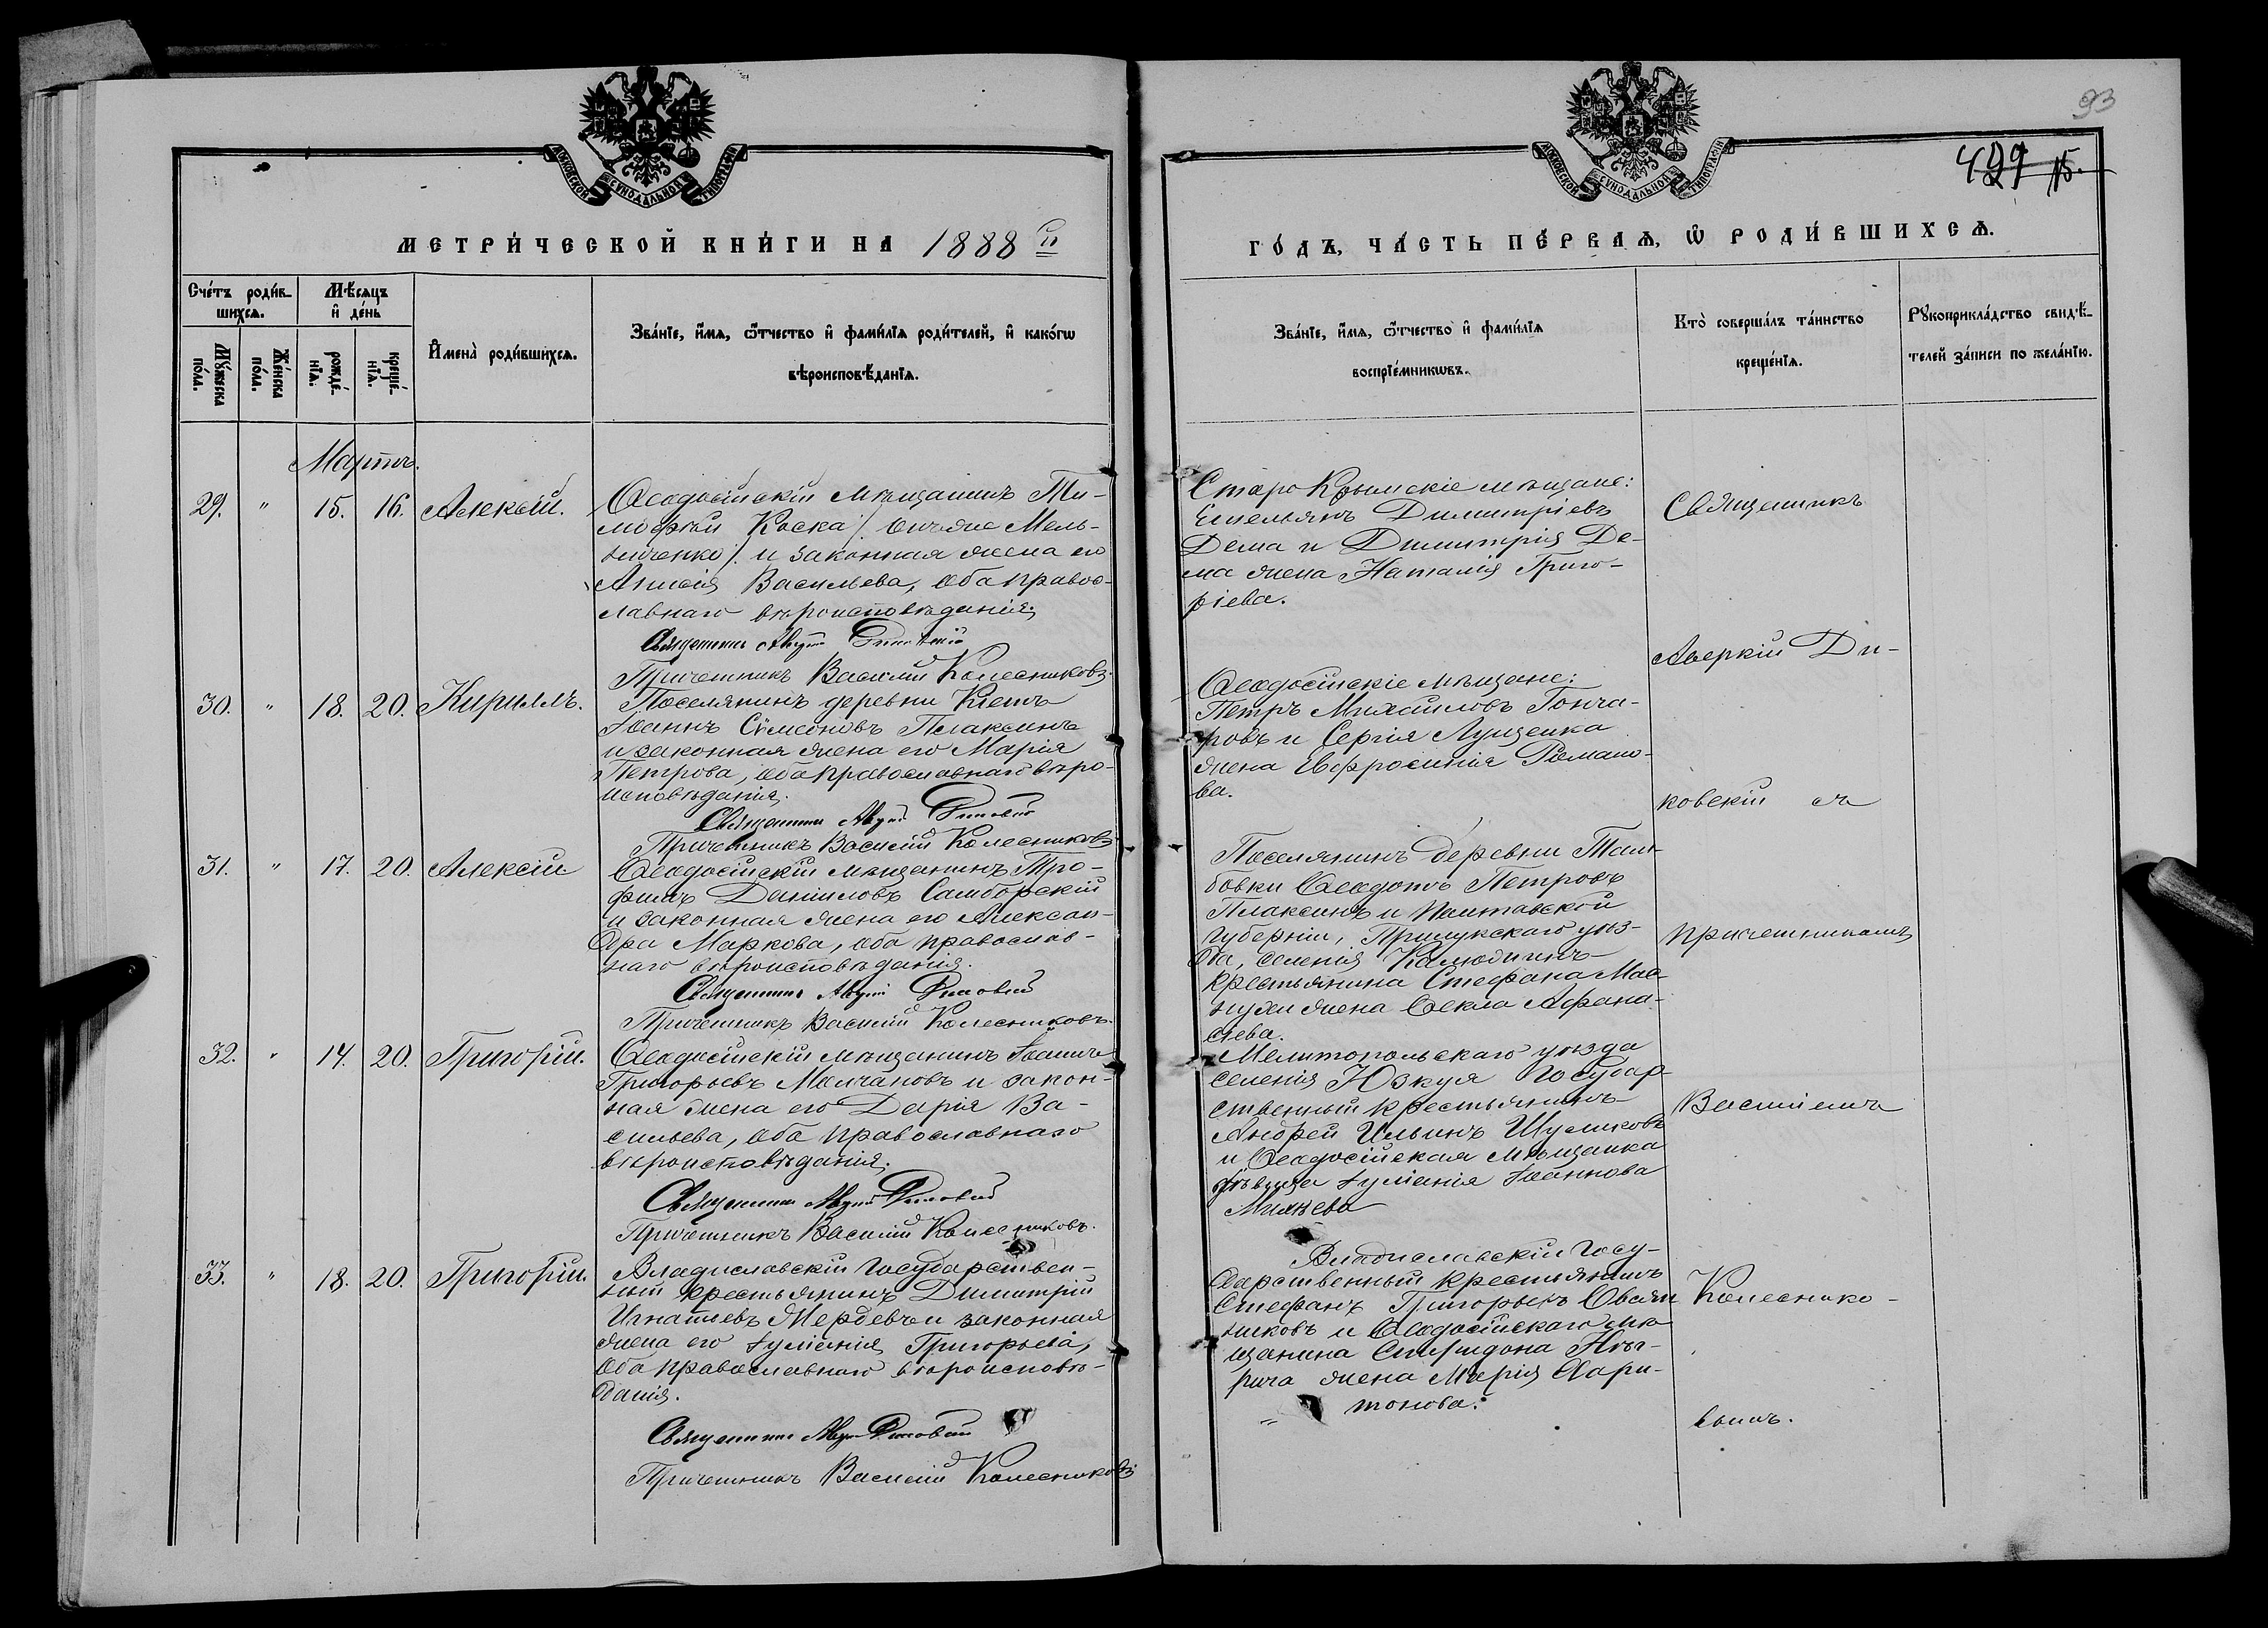 93
429 15.
МОСКОВСКОЙ СУНОДАЛЬНОЙ ТИПОГРАФІИ
МОСКОВСКОЙ СУНОДАЛЬНОЙ ТИПОГРАФІИ
МЕТРИ́ЧЕСКОЙ КНИ́ГИ НА 1888 й
ГО́ДЪ, ЧА́СТЬ ПЕ́РВАѦ, Ѡ҆ РОДИ́ВШИХСѦ.
Сче́тъ роди́в-
шихсѧ.
Мꙋ́жеска по́ла.
Же́нска по́ла.
Мѣ́сѧцъ
и҆ де́нь
рожде́-
нїѧ.
креще́-
нїѧ.
И҆мена̀ роди́вшихсѧ.
Зва́нїе, и҆́мѧ, ѻ҆́тчество и҆ фами́лїѧ роди́телей, и҆ како́гѡ
вѣроисповѣ́данїѧ.
Зва́нїе, и҆́мѧ, ѻ҆́тчество и҆ фами́лїѧ
воспрїе́мникѡвъ.
Кто̀ соверша́лъ та́инство
креще́нїѧ.
Рꙋкоприкла́дство свидѣ́-
телей за́писи по жела́нїю.
Мартъ.
29. " 15. 16. Алексій.
Ѳеодосійскій мѣщанинъ Ти-
мофѣй Коска /: онъ же Мель-
ниченко/. и законная жена его
Анисія Васильева, оба правос-
лавнаго вѣроисповѣданія.
Священникъ Аверкій
Причетникъ Василій Колесниковъ.
Старо Крымскіе мѣщане:
Емельянъ Димитріевъ
Дема и Димитрія Де-
ма жена Наталія Григо-
ріева.
30. " 18. 20. Кириллъ.
Поселянинъ деревни Кіетъ
Іоаннъ Сѵмеоновъ Плаксинъ
и законная жена его Марія
Петрова, оба православнаго вѣро-
исповѣданія.
Священникъ Аверкій
Причетникъ Василій Колесниковъ
Ѳеодосійскіе мѣщане:
Петръ Михайловъ Гонча-
ровъ и Сергія Лущенка
жена Евфросинія Романо-
ва.
31. " 17. 20. Алексій
Ѳеодосійскій мѣщанинъ Тро-
фимъ Даніиловъ Самборскій
и законная жена его Алексан-
дра Маркова, оба православ-
наго вѣроисповѣданія.
Священникъ Аверкій
Причетникъ Василій Колесниковъ.
Поселянинъ деревни Там-
бовки Ѳеодотъ Петровъ
Плаксинъ и Полтавской
губерніи, Прилукскаго уѣз-
да, селенія
крестьянина Стефана Мас-
жена Ѳекла Афана-
сіева.
32. " 14. 20. Григорій.
Ѳеодосійскій мѣщанинъ Іоаннъ
Григорьевъ Молчановъ и закон-
ная жена его Дарія Ва-
сильева, оба православнаго
вѣроисповѣданія.
Священникъ Аверкій
Причетникъ Василій Колесниковъ.
Мелитопольскаго уѣзда
селенія Юзкуя государ-
ственный крестьянинъ
Андрей Ильинъ Шуликовъ
и Ѳеодосійская мѣщанка
дѣвица Іуліанія Іоаннова
33. " 18. 20. Григорій.
Владиславскій государствен-
ный крестьянинъ Димитрій
Игнатіевъ Мердевъ и законная
жена его Іуліанія Григорьева,
оба православнаго вѣроисповѣ-
данія.
Священникъ Аверкій
Причетникъ Василій Колесниковъ
Владиславскій госу-
дарственный крестьянинъ
Стефанъ Григорьевъ Овсян
никовъ и Ѳеодосійскаго мѣ-
щанина Спиридона
жена Марія Хари-
тонова.
Священникъ
Аверкій Ди-
ковскій съ
причетникомъ
Василіемъ
Колеснико-
вымъ.